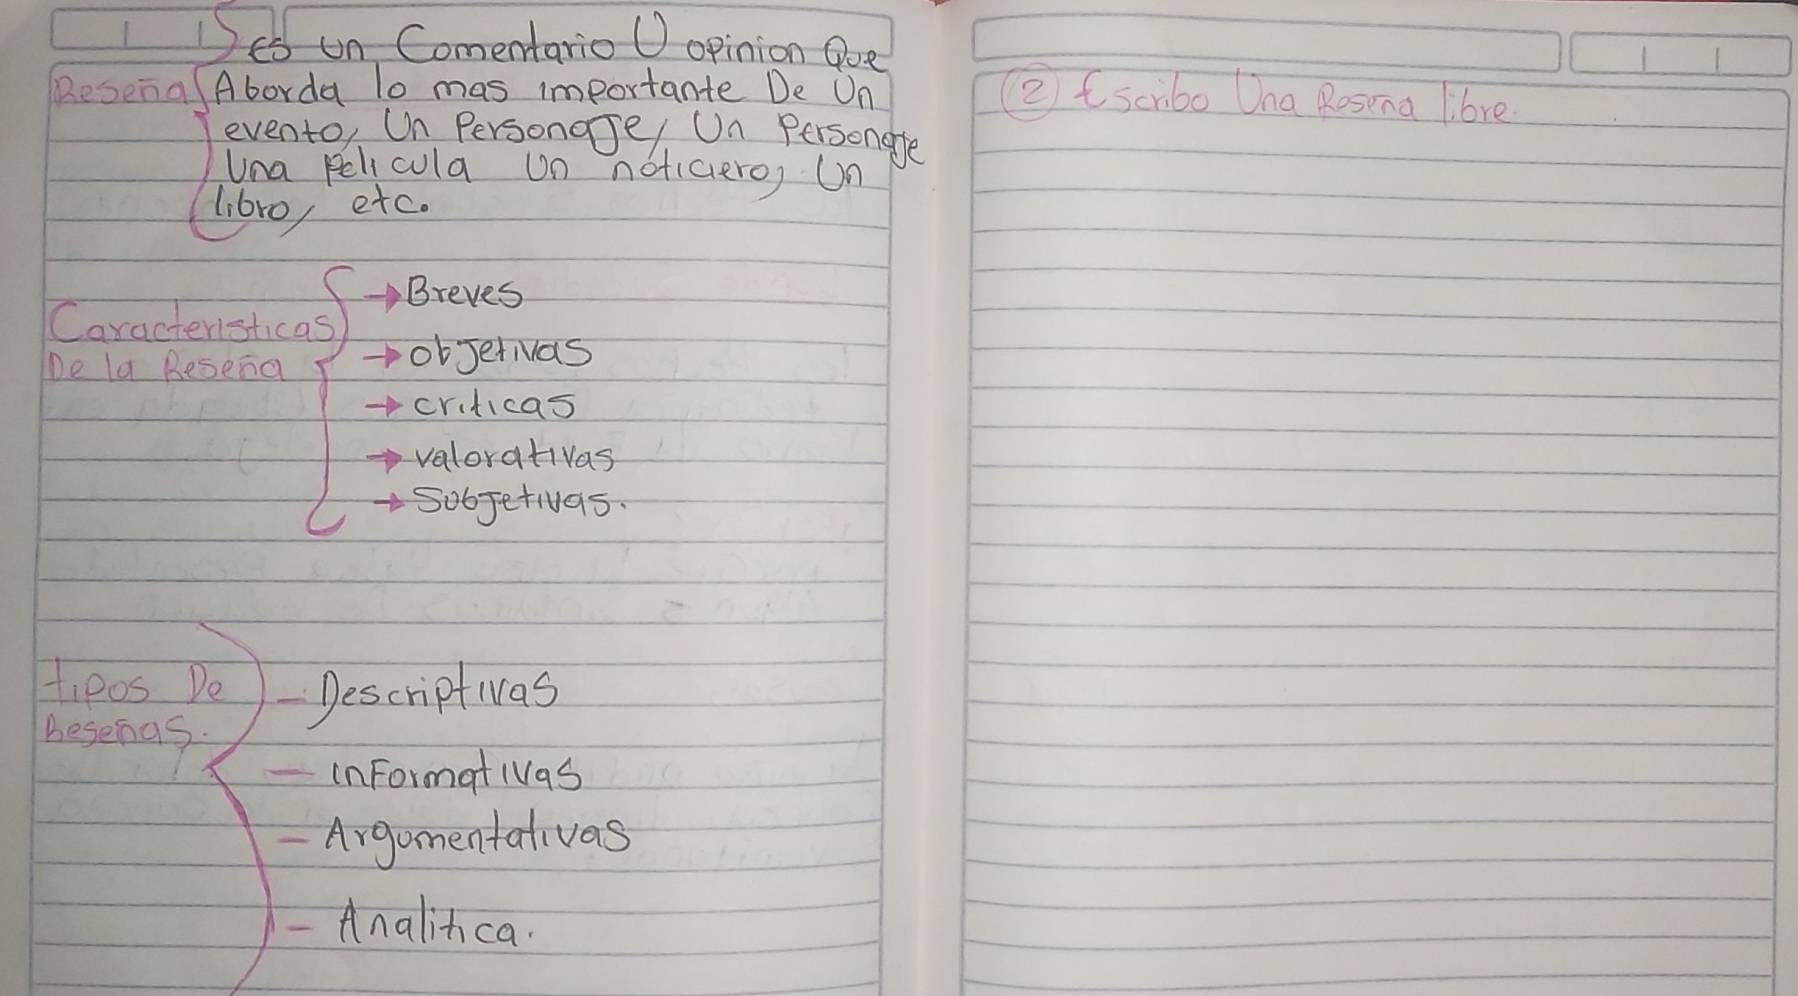 es un Comentario U opinion Que
Reseña Aborda lo mas importante De Un
evento, Un Personaje, Un Personaje
Una Pelicula Un noticiero, Un
libro, etc.
→ Breves
Caracteristicas
→ objetivas
De la Reseña
→ criticas
→ valorativas
→ Subjetivas.
tipos De - Descriptivas
Reseñas.
- informativas
- Argumentativas
- Analitica.
② Escribo Una Resena libre.